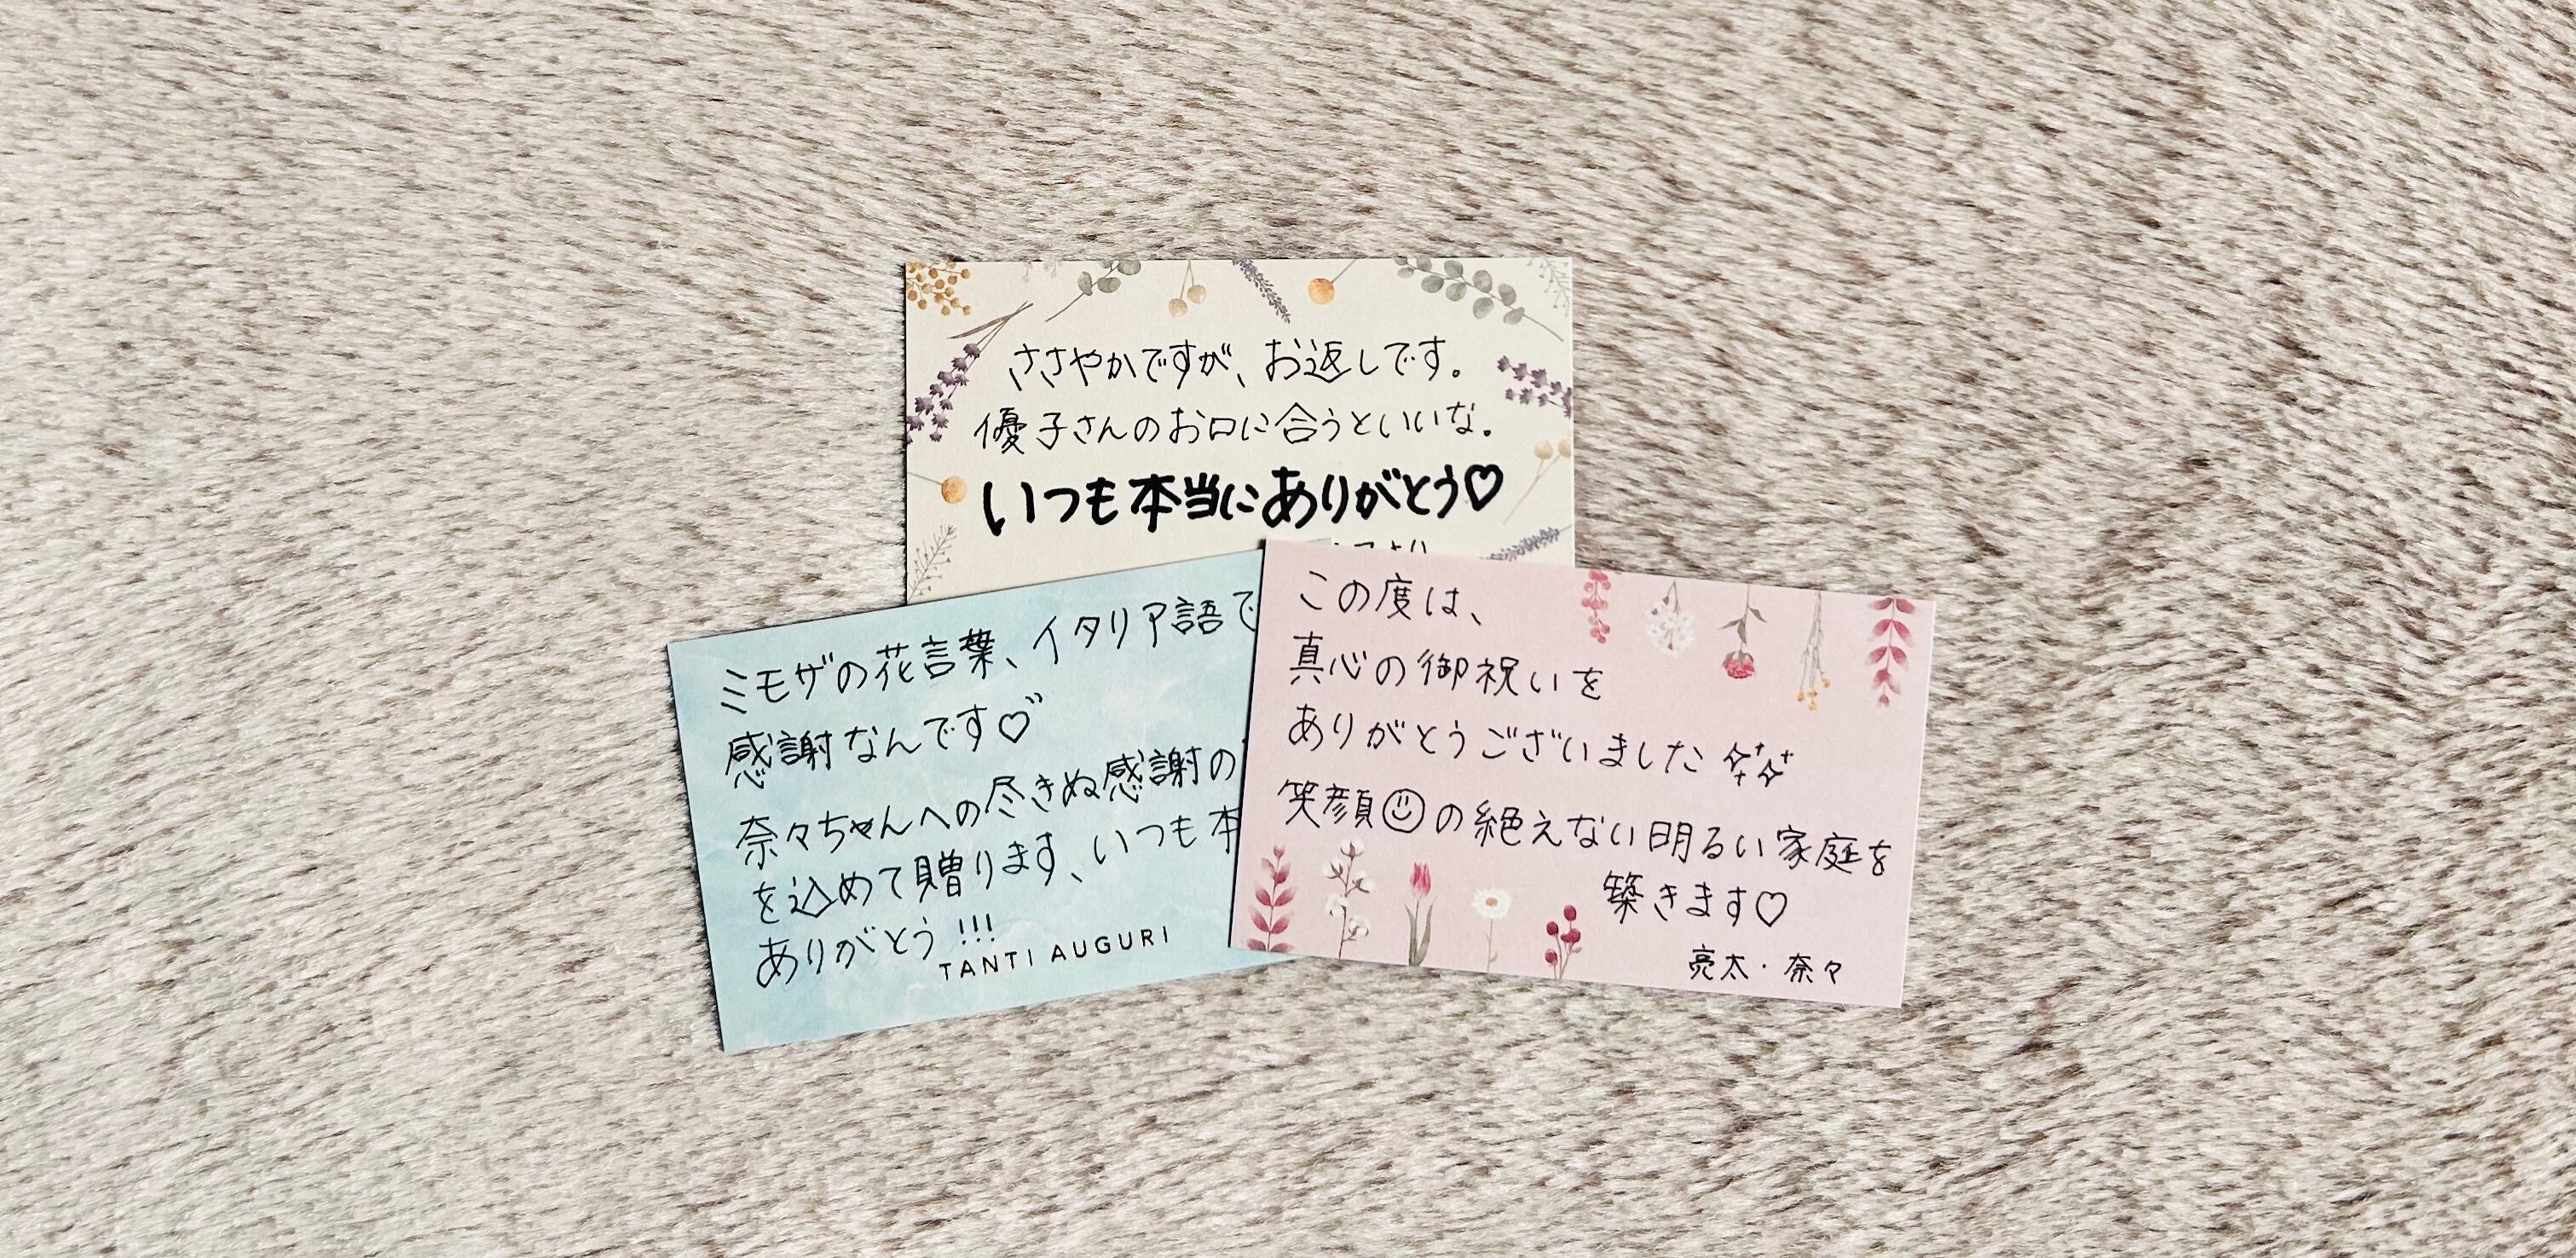 ささやかですが、お返しです。
優子さんのお口に合うといいな。
いつも本当にありがとう♡
ミモザの花言葉、イタリア語で
感謝なんです♡
奈々ちゃんへの尽きぬ感謝の
を込めて贈ります、いつも本
ありがとう!!!
TANTI AUGURI
この度は、
真心の御祝いを
ありがとうございました
笑顔☺の絶えない明るい家庭を
築きます♡
亮太・奈々